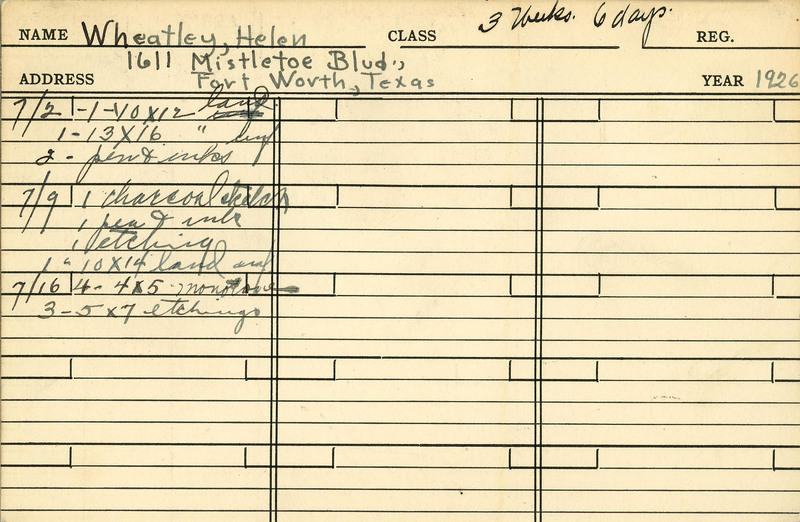 NAME Wheatley, Helen CLASS 3 Weeks. 6 days. REG.
1611 Mistletoe Blvd.,
ADDRESS Fort Worth, Texas YEAR 1926
7/2 1-1-10X12 land
1-13X16 "
2 - pen & inks
7/9 1 charcoal sketch
1 pen & ink
1 etching
1 " 10X14 land
7/16 4 - 4X5 monotone
3-5X7 etchings